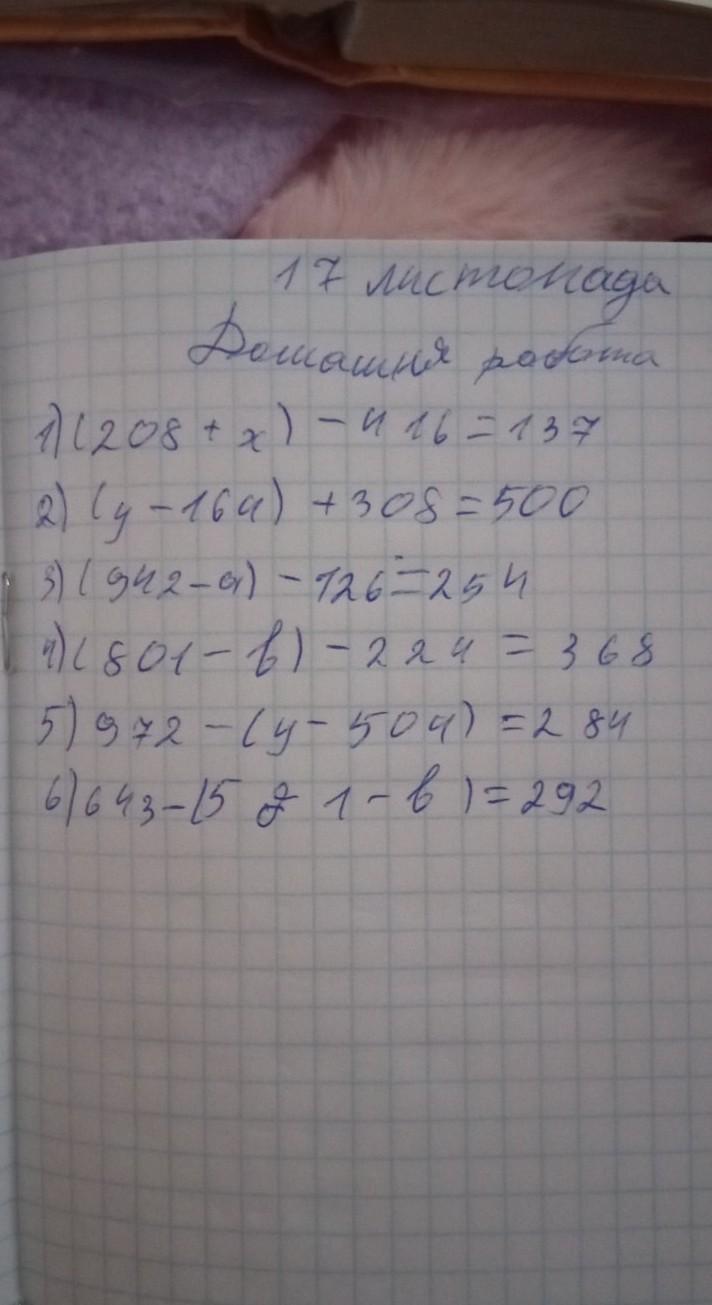 17 листопада
Домашня робота
1) (208 + x) - 416 = 137
2) (y - 164) + 308 = 500
3) (942 - a) - 126 = 254
4) (801 - b) - 224 = 368
5) 972 - (y - 504) = 284
6) 643 - (581 - b) = 292